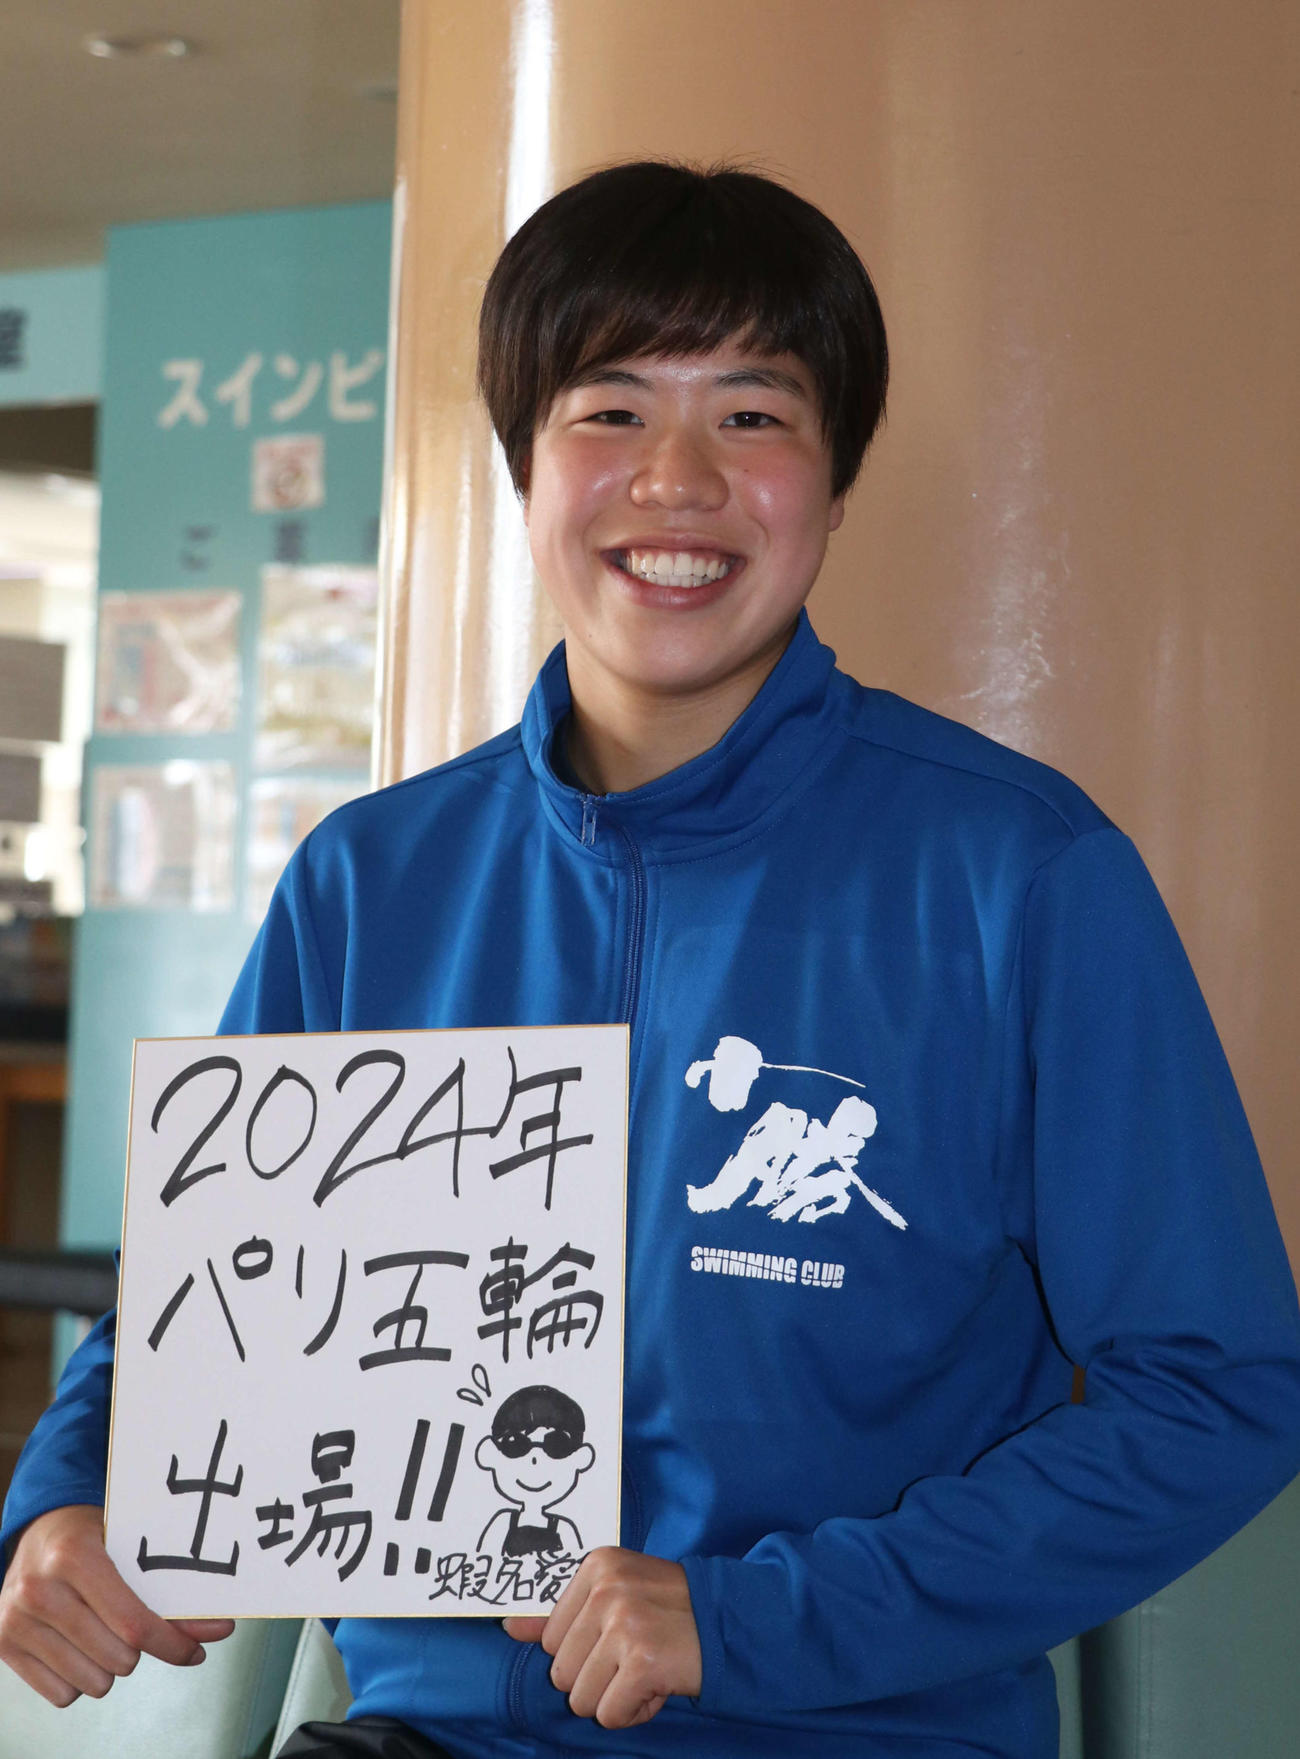 スインピ
ご
2024年
パリ五輪
出場!!
蝦名愛
SWIMMING CLUB